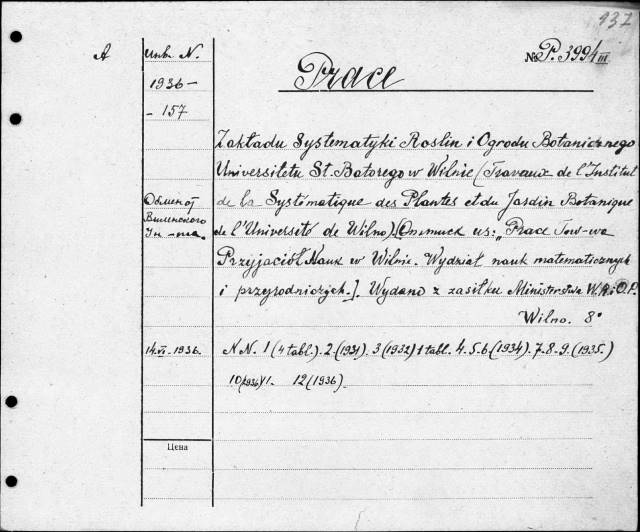 937
A
Инв. N.
№ P. 399/III
1936-
-157
Prace
Zakładu Systematyki Roslin i Ogrodu Botanicznego
Uniwersitetu St. Batorego w Wilnie (Travaux de l'Institut
de la Systématique des Plantes et du Jardin Botanique
de l'Université de Wilno). [Оттиск из: „Prace Tow-wa
Przyjaciół Nauk w Wilnie. Wydział nauk matematycznych
i przyrodniczych.]. Wydano z zasiłku Ministerstwa W.R.i O.P.
Wilno. 8°
Обмен от
Виленского
Ун-та.
14.VI.1936.
NN. 1 (4 tabl.). 2 (1931). 3 (1932) 1 tabl. 4. 5. 6 (1934). 7. 8. 9. (1935.)
10 (1936) 11. 12 (1936)
Цена